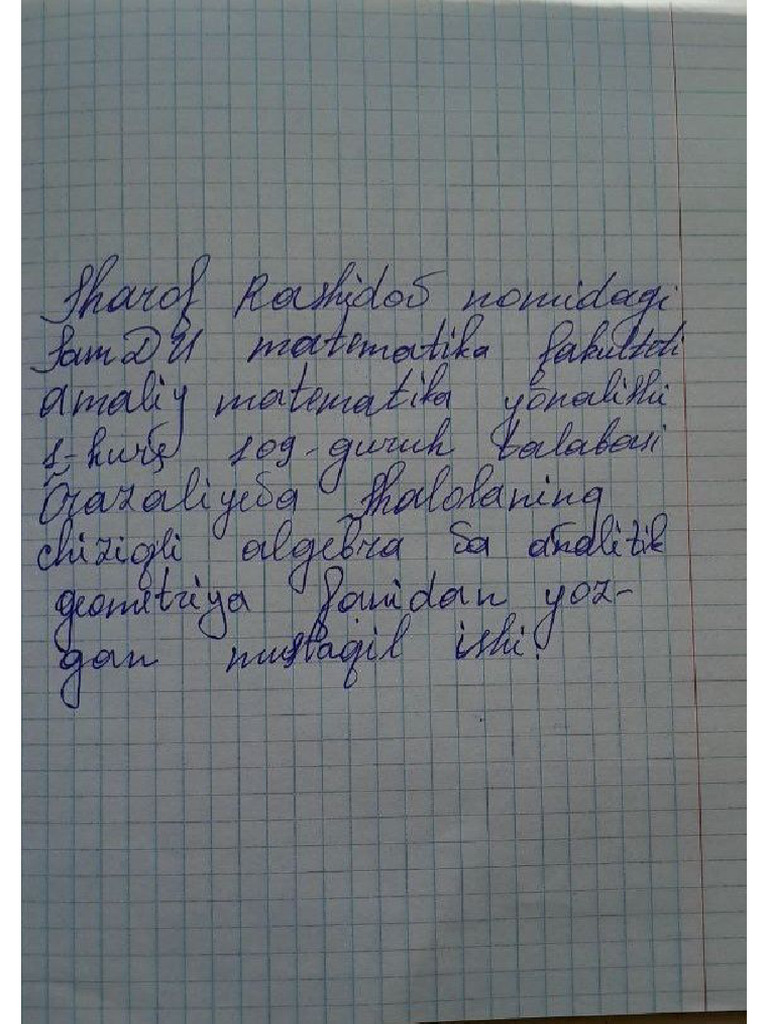 Sharof Rashidov nomidagi
SamDU matematika fakulteti
amaliy matematika yõnalishi
1-kurs 109-guruh talabasi
Õrazaliyeva Shalolaning
chiziqli algebra va analitik
geometriya fanidan yoz-
gan mustaqil ishi.